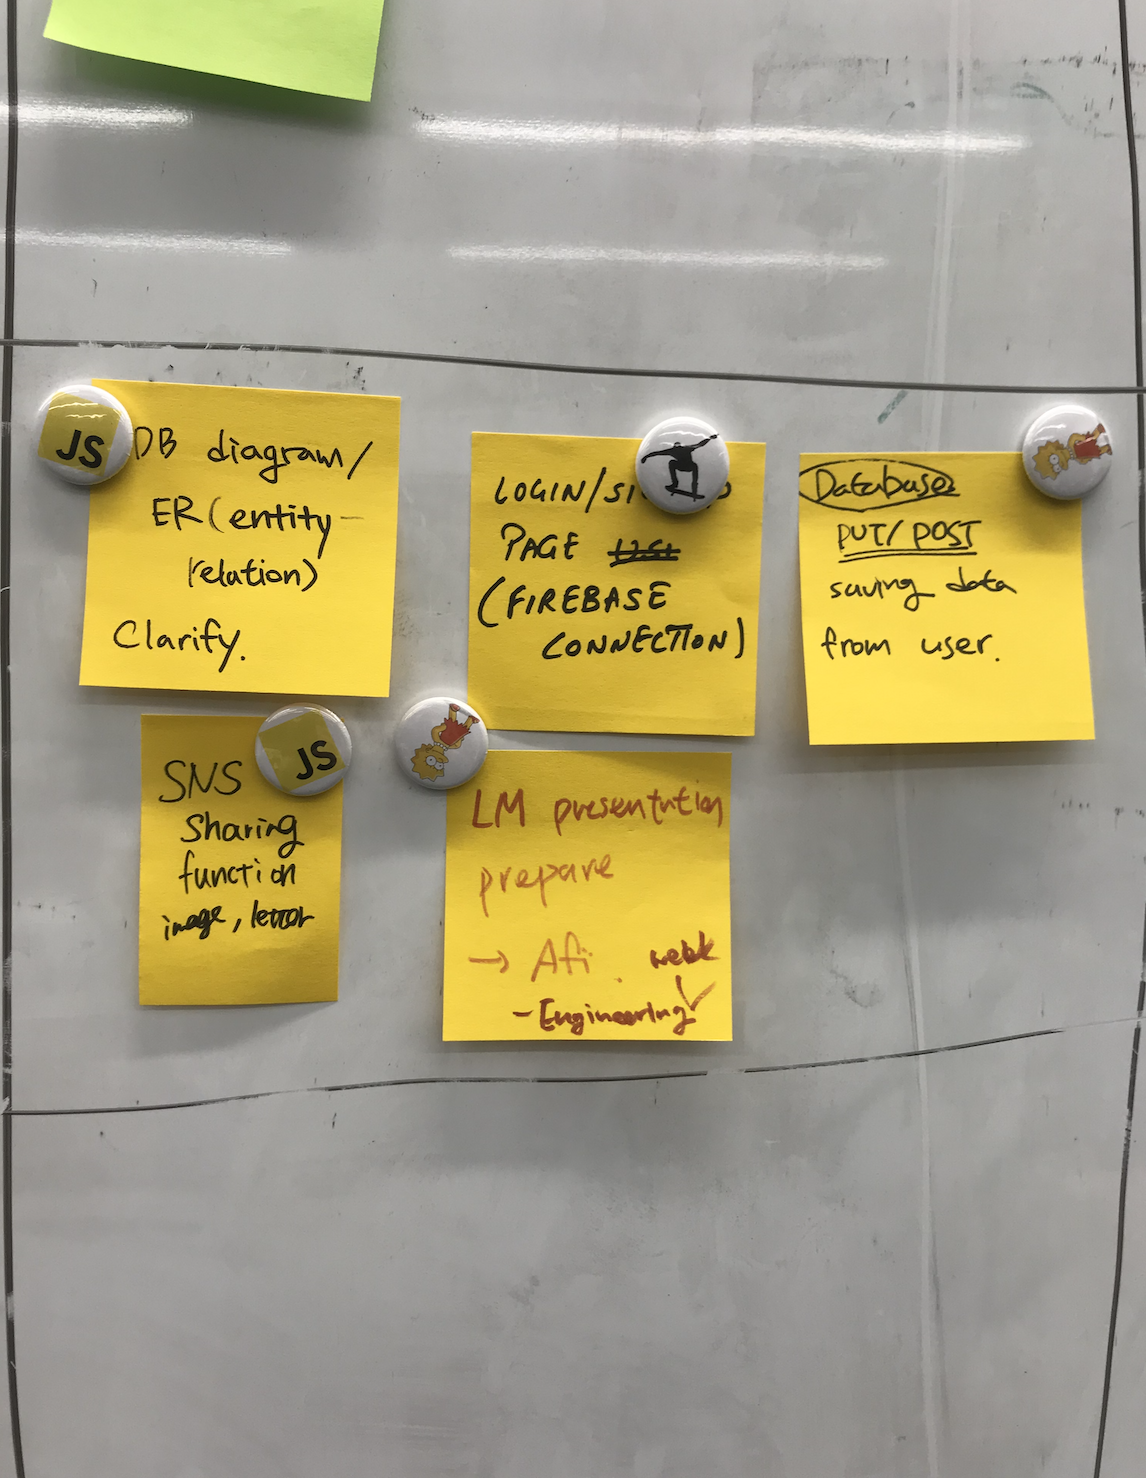 JS
DB diagram/
ER(entity-
relation)
Clarify.
LOGIN/
PAGE
(FIREBASE
CONNECTION)
Database
PUT/POST
saving data
from user.
JS
SNS
Sharing
function
image, letter
LM presentation
prepare
→ Afi.
- Engineering